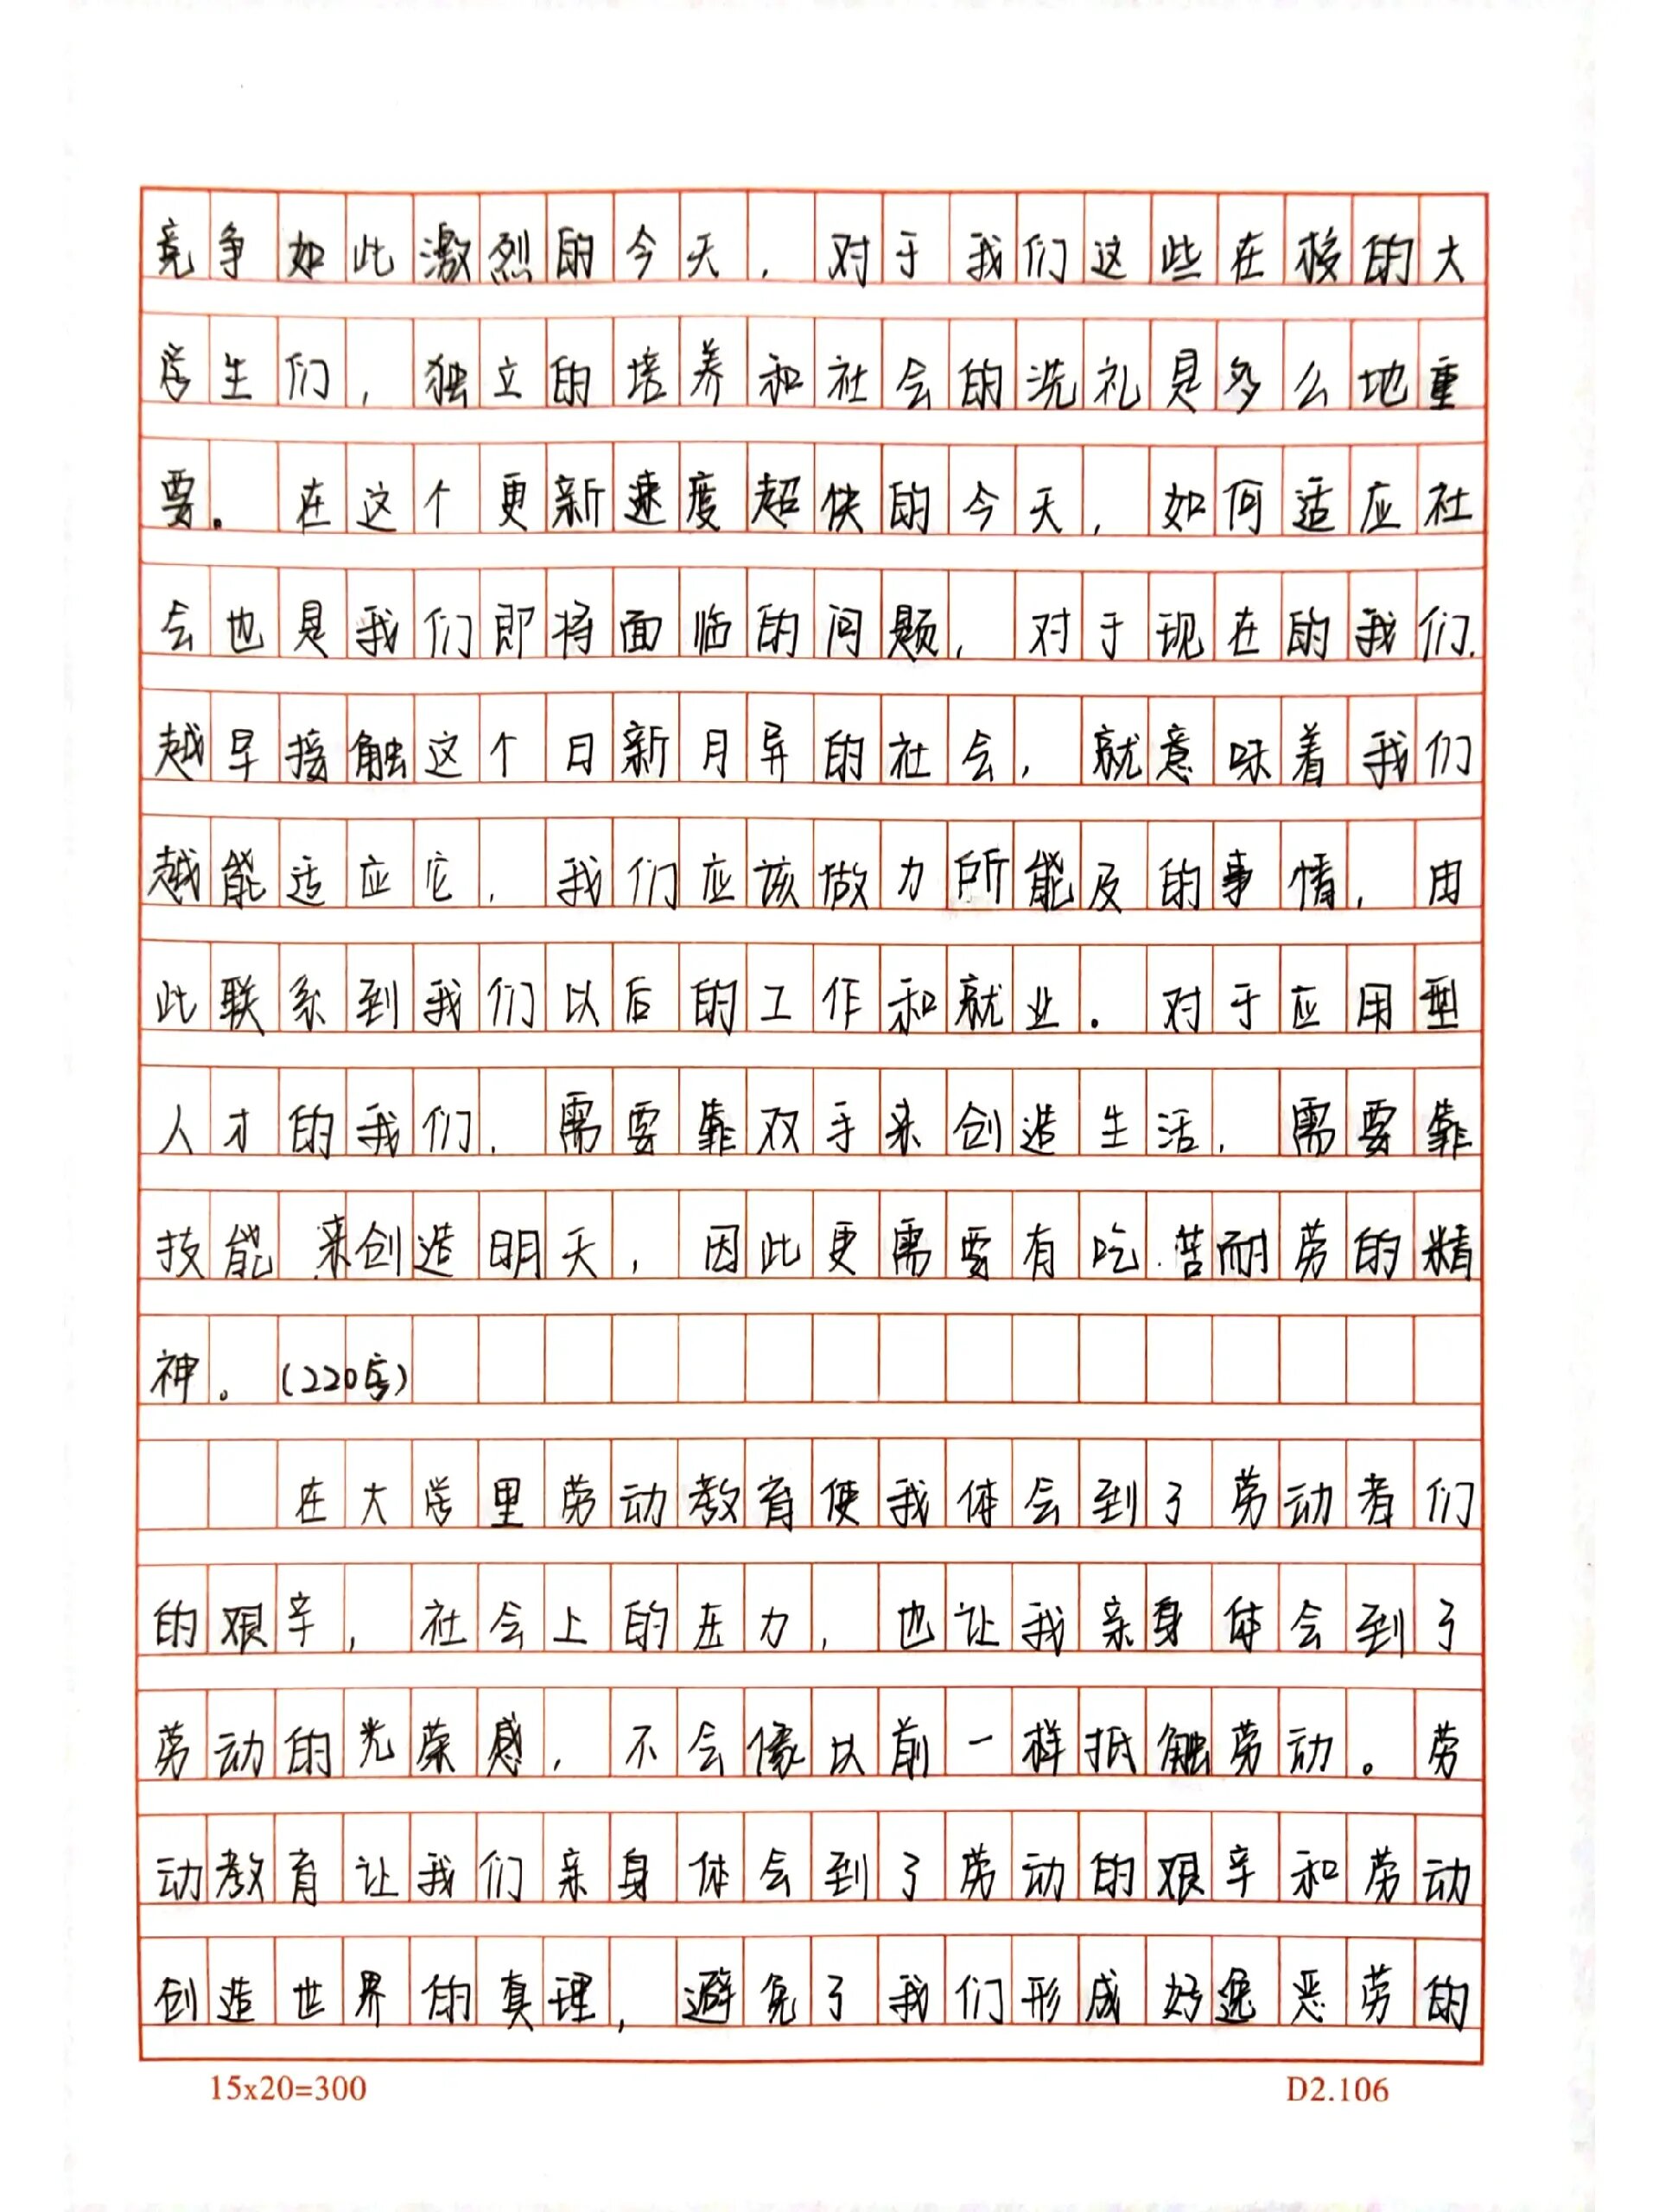 竞争如此激烈的今天，对于我们这些在校的大
学生们，独立的培养和社会的洗礼是多么地重
要。在这个更新速度超快的今天，如何适应社
会也是我们即将面临的问题，对于现在的我们，
越早接触这个日新月异的社会，就意味着我们
越能适应它，我们应该做力所能及的事情，由
此联系到我们以后的工作和就业。对于应用型
人才的我们，需要靠双手来创造生活，需要靠
技能来创造明天，因此更需要有吃苦耐劳的精
神。(220字)
在大学里劳动教育使我体会到了劳动者们
的艰辛，社会上的压力，也让我亲身体会到了
劳动的光荣感，不会像以前一样抵触劳动。劳
动教育让我们亲身体会到了劳动的艰辛和劳动
创造世界的真理，避免了我们形成好逸恶劳的
15x20=300 D2.106